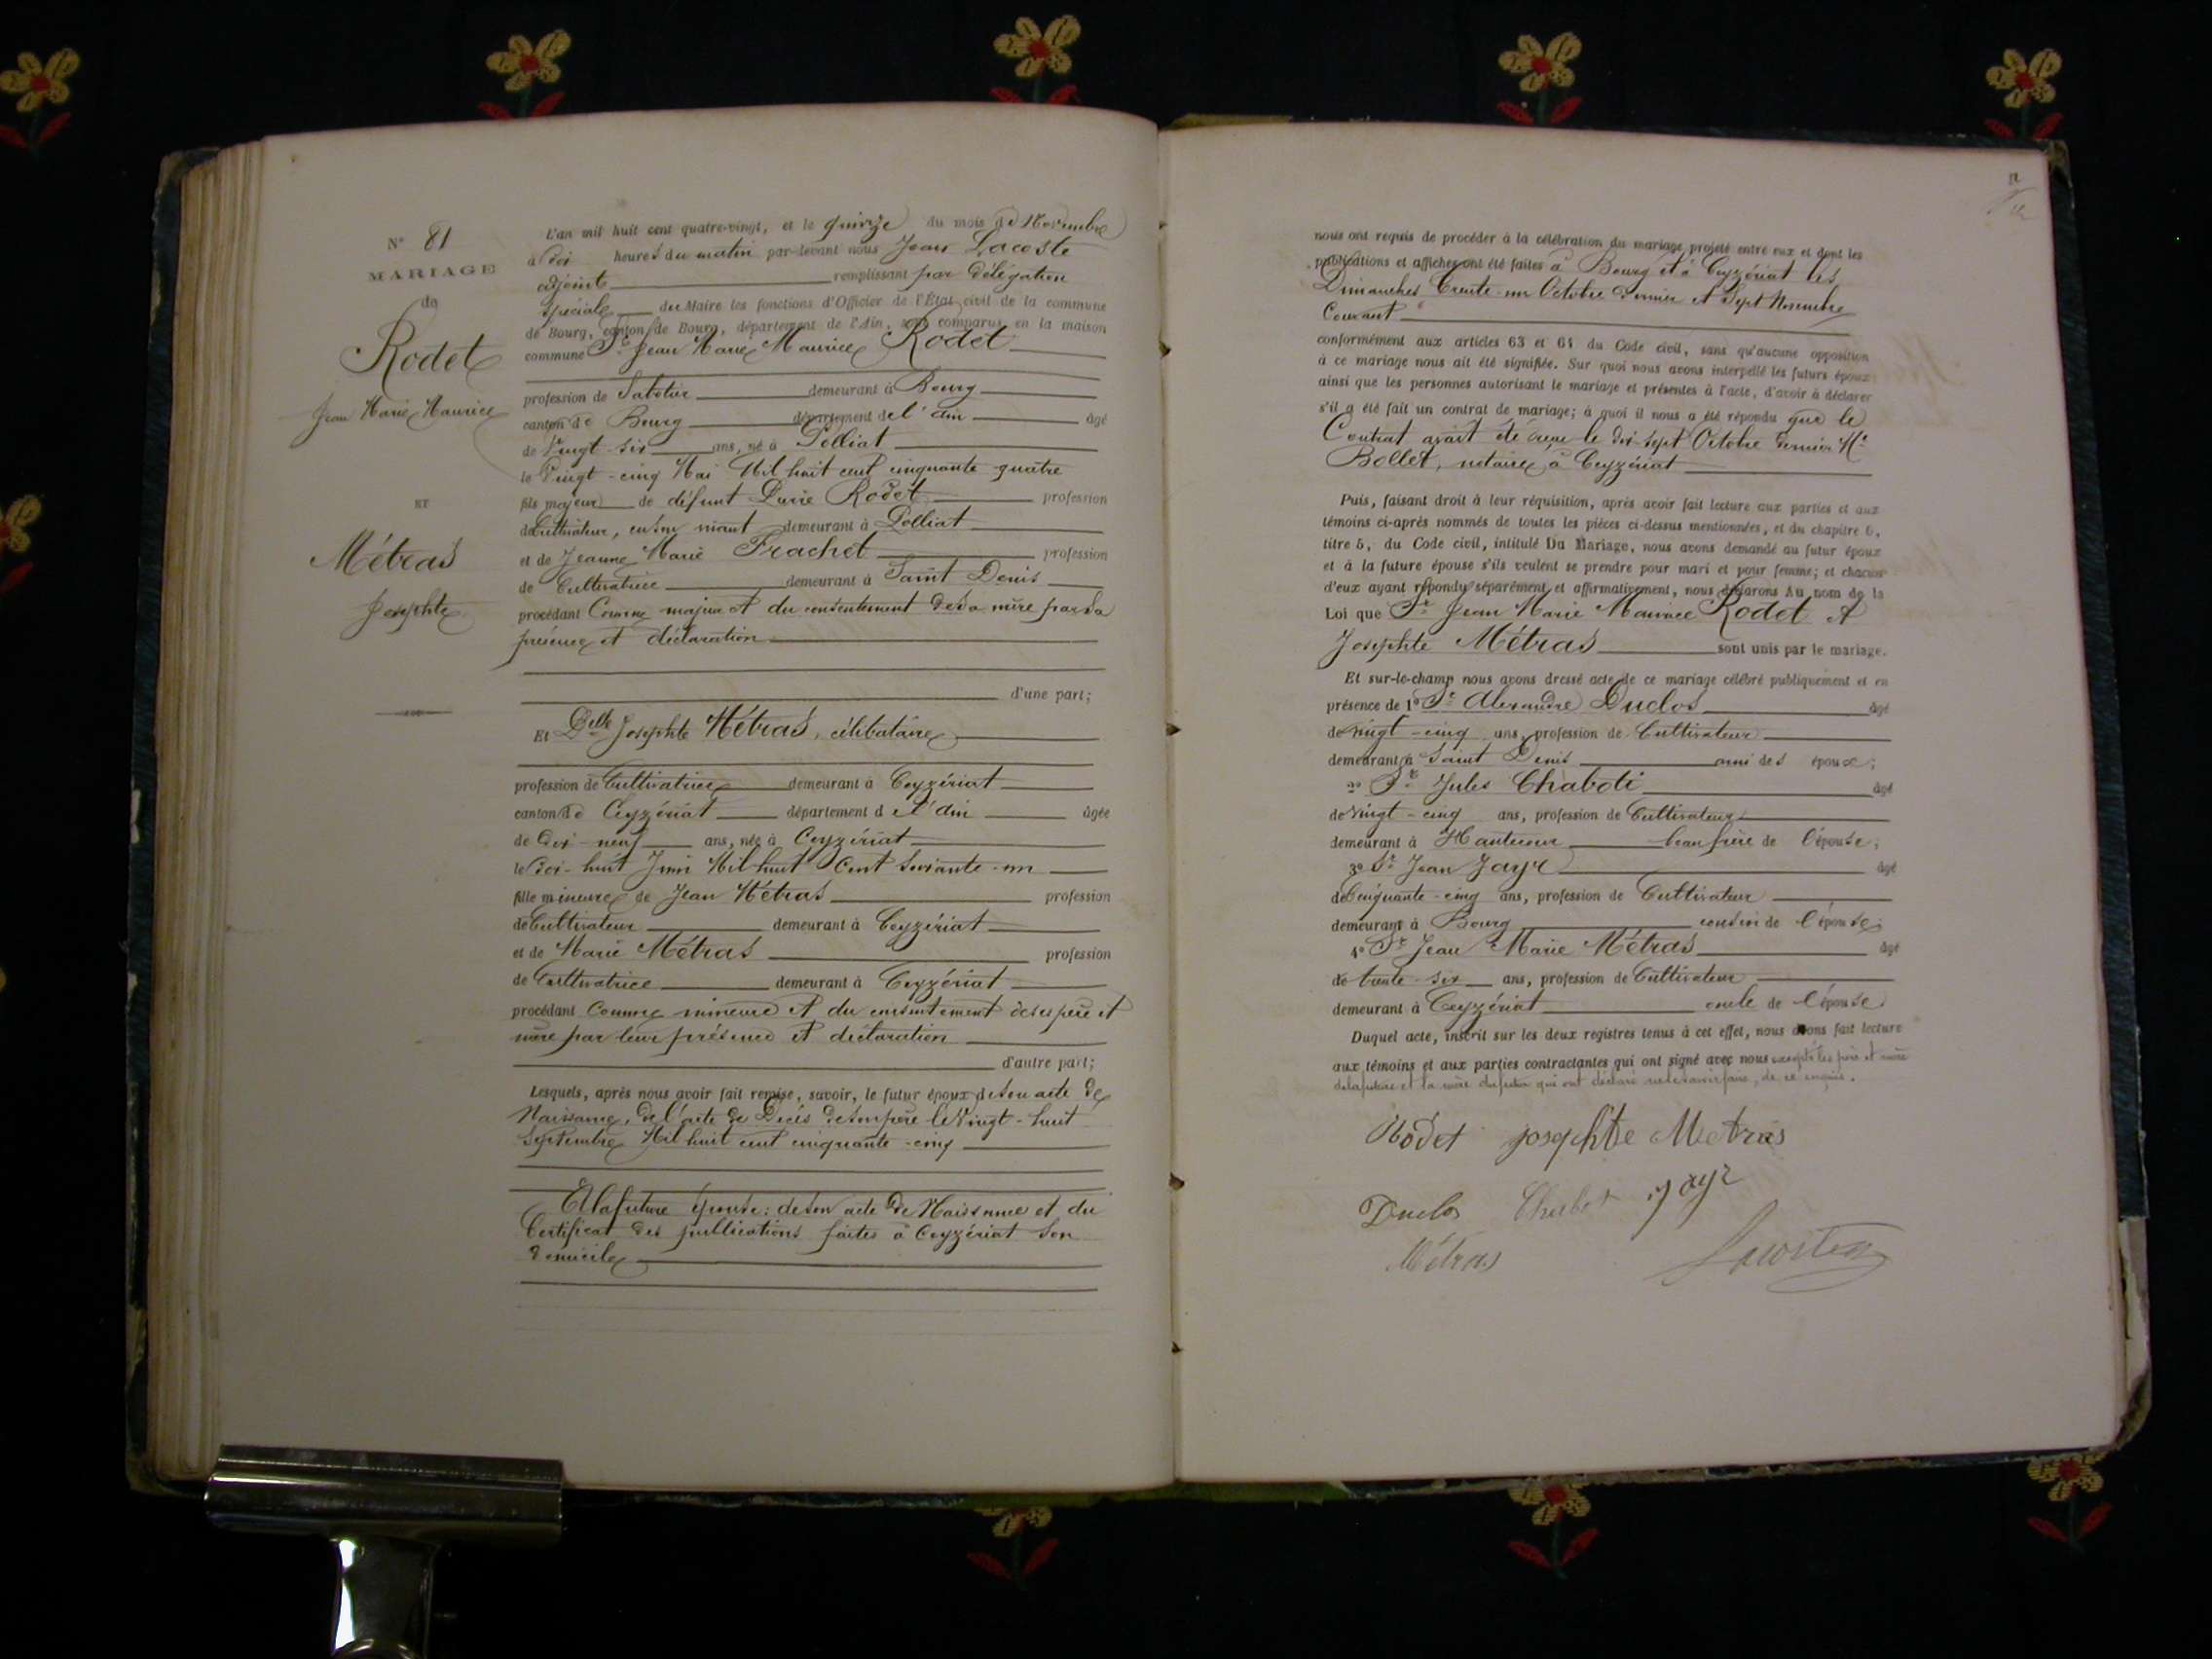 N° 81
MARIAGE
de
Rodet
Jean Marie Maurice
ET
Métras
Josephte
L'an mil huit cent quatre-vingt, et le quinze du mois de Novembre
à dix heures du matin par-devant nous Jean Lacoste
adjoint remplissant par délégation
spéciale du Maire les fonctions d'Officier de l'État civil de la commune
de Bourg, canton de Bourg, département de l'Ain, sont comparus en la maison
commune Sr Jean Marie Maurice Rodet
profession de Sabotier demeurant à Bourg
canton de Bourg département de l'ain âgé
de Vingt-six ans, né à Polliat
le Vingt-cinq Mai Mil huit cent cinquante-quatre
fils majeur de défunt Rodet profession
de Cultivateur, en son vivant demeurant à Polliat
et de Jeanne Marie Frachet profession
de Cultivatrice demeurant à Saint Denis
procédant Comme majeur et du consentement de sa mère par sa
présence et déclaration
d'une part;
Et Delle Josephte Métras, célibataire
profession de Cultivatrice demeurant à Ceyzériat
canton de Ceyzériat département de l'ain âgée
de dix-neuf ans, née à Ceyzériat
le dix-huit Juin Mil huit Cent Soixante-un
fille mineure de Jean Métras profession
de Cultivateur demeurant à Ceyzériat
et de Marie Métras profession
de Cultivatrice demeurant à Ceyzériat
procédant Comme mineure et du consentement de ses père et
mère par leur présence et déclaration
d'autre part;
Lesquels, après nous avoir fait remise, savoir, le futur époux de son acte de
Naissance, de l'acte de Décès de son père le Vingt-huit
Septembre Mil huit cent cinquante-cinq
Et la future épouse: de son acte de Naissance et du
Certificat des publications faites à Ceyzériat son
domicile
nous ont requis de procéder à la célébration du mariage projeté entre eux et dont les
publications et affiches ont été faites à Bourg et à Ceyzériat les
Dimanches Trente-un Octobre dernier et Sept Novembre
Courant
conformément aux articles 63 et 64 du Code civil, sans qu'aucune opposition
à ce mariage nous ait été signifiée. Sur quoi nous avons interpellé les futurs époux
ainsi que les personnes autorisant le mariage et présentes à l'acte, d'avoir à déclarer
s'il a été fait un contrat de mariage; à quoi il nous a été répondu que le
Contrat avait été reçu le dix-sept Octobre dernier Me
Bollet, notaire à Ceyzériat
Puis, faisant droit à leur réquisition, après avoir fait lecture aux parties et aux
témoins ci-après nommés de toutes les pièces ci-dessus mentionnées, et du chapitre 6,
titre 5, du Code civil, intitulé Du Mariage, nous avons demandé au futur époux
et à la future épouse s'ils veulent se prendre pour mari et pour femme; et chacun
d'eux ayant répondu séparément et affirmativement, nous déclarons Au nom de la
Loi que Sr Jean Marie Maurice Rodet et
Josephte Métras sont unis par le mariage.
Et sur-le-champ nous avons dressé acte de ce mariage célébré publiquement et en
présence de 1° Sr Alexandre Duclos âgé
de vingt-cinq ans, profession de Cultivateur
demeurant à Saint Denis ami des époux;
2° Sr Jules Chabot âgé
de vingt-cinq ans, profession de Cultivateur
demeurant à beau frère de l'épouse;
3° Sr Jean Jayr âgé
de Cinquante-cinq ans, profession de Cultivateur
demeurant à Bourg cousin de l'épouse;
4° Sr Jean Marie Métras âgé
de trente-six ans, profession de Cultivateur
demeurant à Ceyzériat oncle de l'épouse.
Duquel acte, inscrit sur les deux registres tenus à cet effet, nous avons fait lecture
aux témoins et aux parties contractantes qui ont signé avec nous excepté les père et mère
de la future et la mère du futur qui ont déclaré ne le savoir faire, de ce enquis.
Rodet josephte Metras
Duclos Chabot jayr
Métras Lacoste